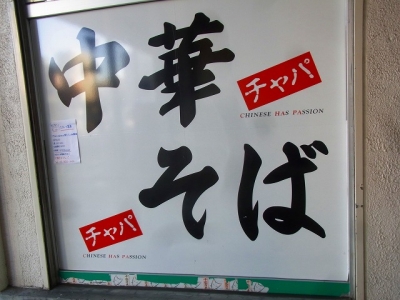 中華
チャパ
CHINESE HAS PASSION
そば
チャパ
CHINESE HAS PASSION